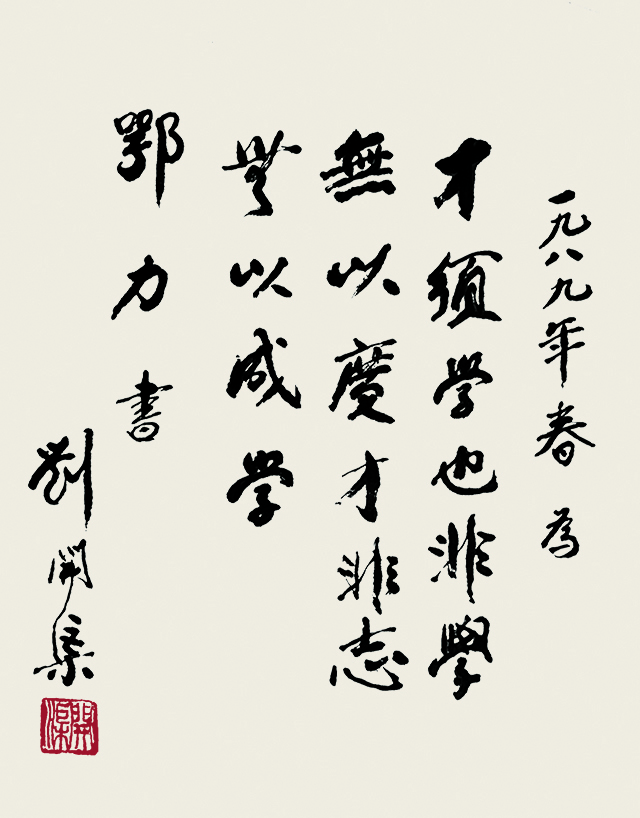 一九八九年春為
才須學也非學
無以廣才非志
無以成學
鄂力書
劉開渠
開渠